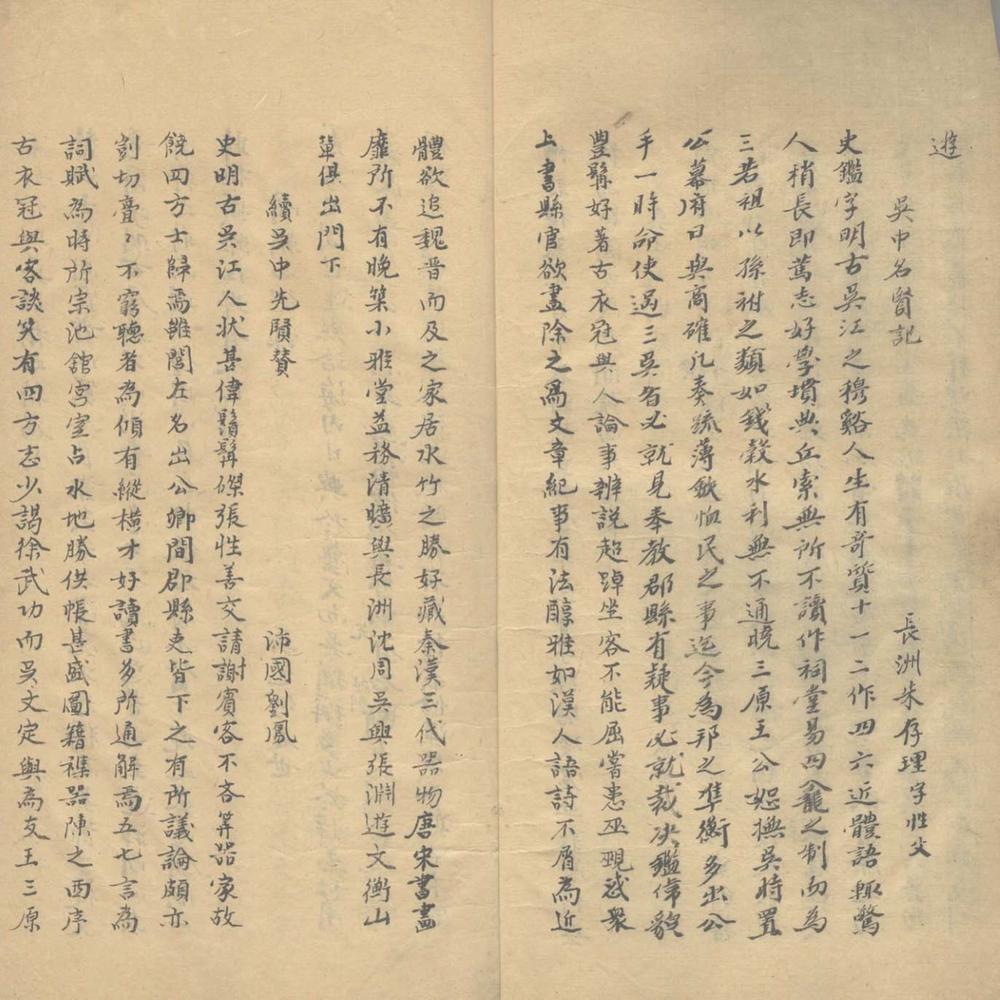 遊
吳中名賢記
長洲朱存理字性父
史鑑字明古吳江之穆谿人生有奇質十一二作四六近體語輒驚
人稍長即篤志好學墳典丘索無所不讀作祠堂易四龕之制而為
三若祖以孫祔之類如錢穀水利無不通曉三原王公恕撫吳時置
公幕府日與商確凡奏疏薄歛恤民之事迄今為邦之準衡多出公
手一時命使過三吳者必就見奉教郡縣有疑事必就裁决鑑偉貌
豐髯好著古衣冠與人論事辨說超踔坐客不能屈嘗患巫覡惑衆
上書縣官欲盡除之為文章紀事有法醇雅如漢人語詩不屑為近
體欲追魏晋而及之家居水竹之勝好藏秦漢三代器物唐宋書畫
靡所不有晚築小雅堂益務清曠與長洲沈周吳興張淵遊文衡山
輩俱出門下
續吳中先賢贊
沛國劉鳳
史明古吳江人狀甚偉鬚髯磔張性善交請謝賓客不吝筭器家故
饒四方士歸焉雖閭左名出公卿間郡縣吏皆下之有所議論頗亦
剴切亹々不窮聽者為傾有縱橫才好讀書多所通解焉五七言為
詞賦為時所宗池舘宮室占水地勝供帳甚盛圖籍襍器陳之西序
古衣冠與客談笑有四方志少謁徐武功而吳文定與為友王三原